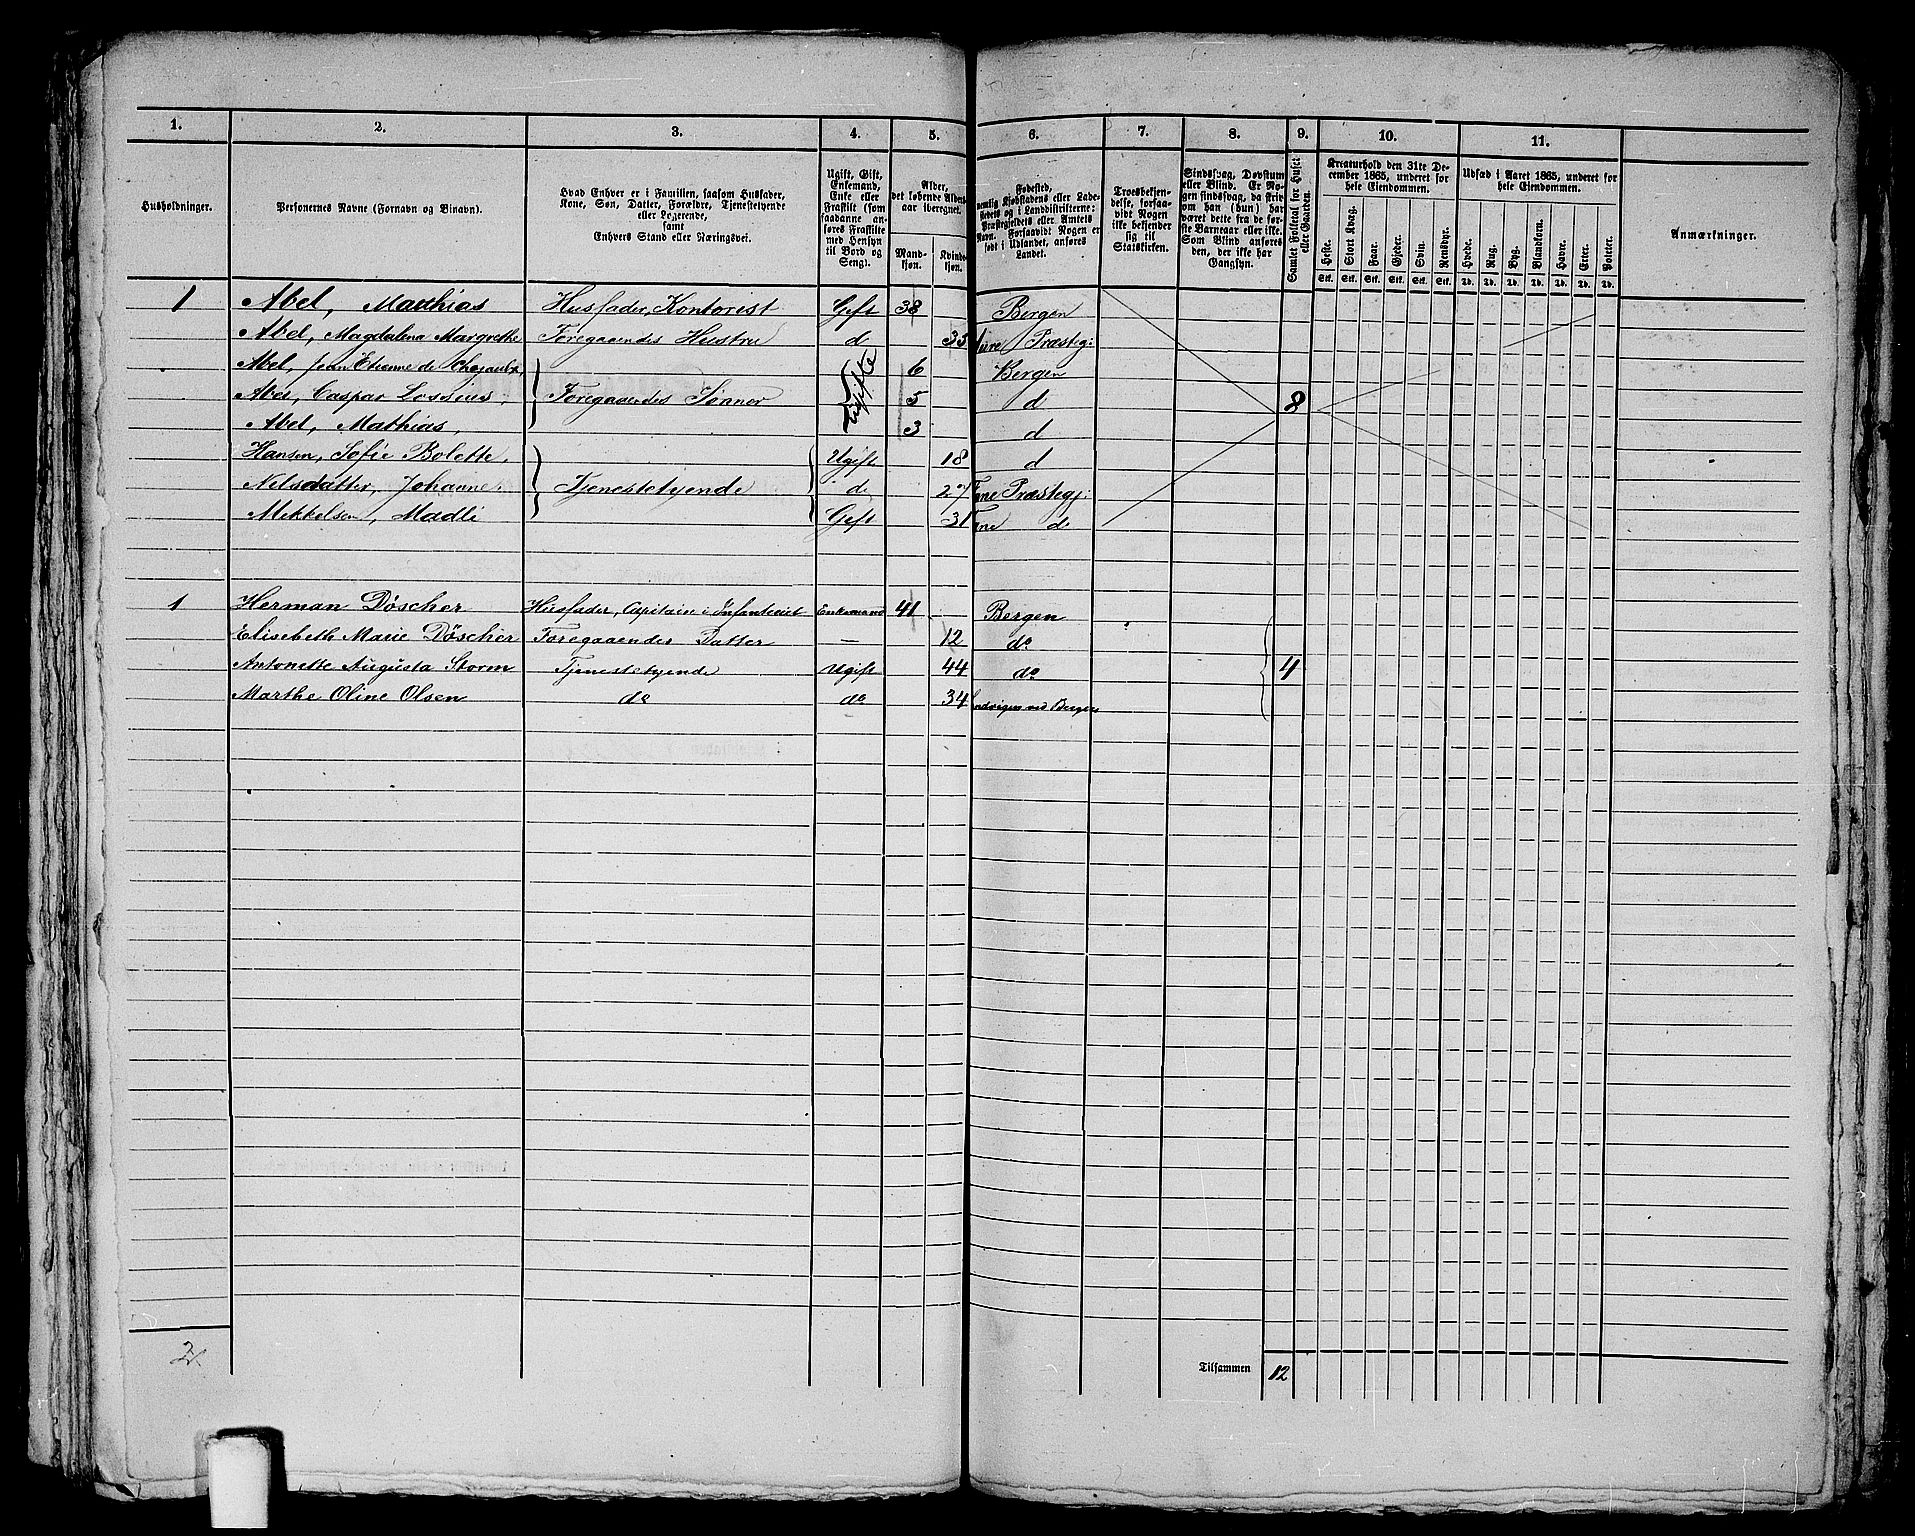 1. 2. 3. 4. 5. 6. 7. 8. 9. 10. 11.
Husholdninger.
Personernes Navne (Fornavn og Binavn).
Hvad Enhver er i Familien, saasom Husfader,
Kone, Søn, Datter, Forældre, Tjenestetyende
eller Logerende,
samt
Enhvers Stand eller Næringsvei.
Ugift, Gift,
Enkemand,
Enke eller
Fraskilt (som
saadanne an-
føres Fraskilte
med Hensyn
til Bord og
Seng).
Alder,
det løbende Alders-
aar iberegnet.
Mand-
kjøn.
Kvind-
kjøn.
Fødested,
nemlig Kjøbstadens eller Lade-
stedets og i Landdistrikterne:
Præstegjeldets eller Amtets
Navn. Forsaavidt Nogen er
født i Udlandet, anføres
Landet.
Troesbekjen-
delse, forsaa-
vidt Nogen
ikke bekjender
sig til
Statskirken.
Sindssvag, Døvstum
eller Blind. Er No-
gen sindssvag, da skriv
om han (hun) har
været dette fra de før-
ste Barneaar eller ikke.
Som Blind anføres
den, der ikke har
Gangsyn.
Samlet Folketal for Huset
eller Gaarden.
Kreaturhold den 31te De-
cember 1865, underet for
hele Eiendommen.
Heste. Stort Kvæg. Faar. Gjeder. Svin. Rensdyr.
Stk. Stk. Stk. Stk. Stk. Stk.
Udsæd i Aaret 1865, underet for
hele Eiendommen.
Hvede. Rug. Byg. Blandkorn. Havre. Erter. Poteter.
Td. Td. Td. Td. Td. Td. Td.
Anmærkninger.
1 Abel, Matthias Husfader, Kontorist Gift 38 Bergen
Abel, Magdalena Margrethe Foregaaendes Hustru d 35 Præstegj:
Abel, Jean Etienne de 6 Bergen
Abel, Caspar Lossius, Foregaaendes Sønner Ugifte 5 d 8
Abel, Mathias, 3 d
Hansen, Sofie Bolette, Ugift 18 d
Nilsdatter, Johanne Tjenestetyende d 27 Fane Præstegj:
Mekkelsen, Madli Gift 31 Fane d
1 Herman Döscher Husfader, Capitain i Infanteriet Enkemand 41 Bergen
Elisebeth Marie Döscher Foregaaendes Datter — 12 do
Antonette Augusta Storm Tjenestetyende Ugift 44 do 4
Marthe Oline Olsen do do 34 Sandvigen ved Bergen
2.
Tilsammen 12